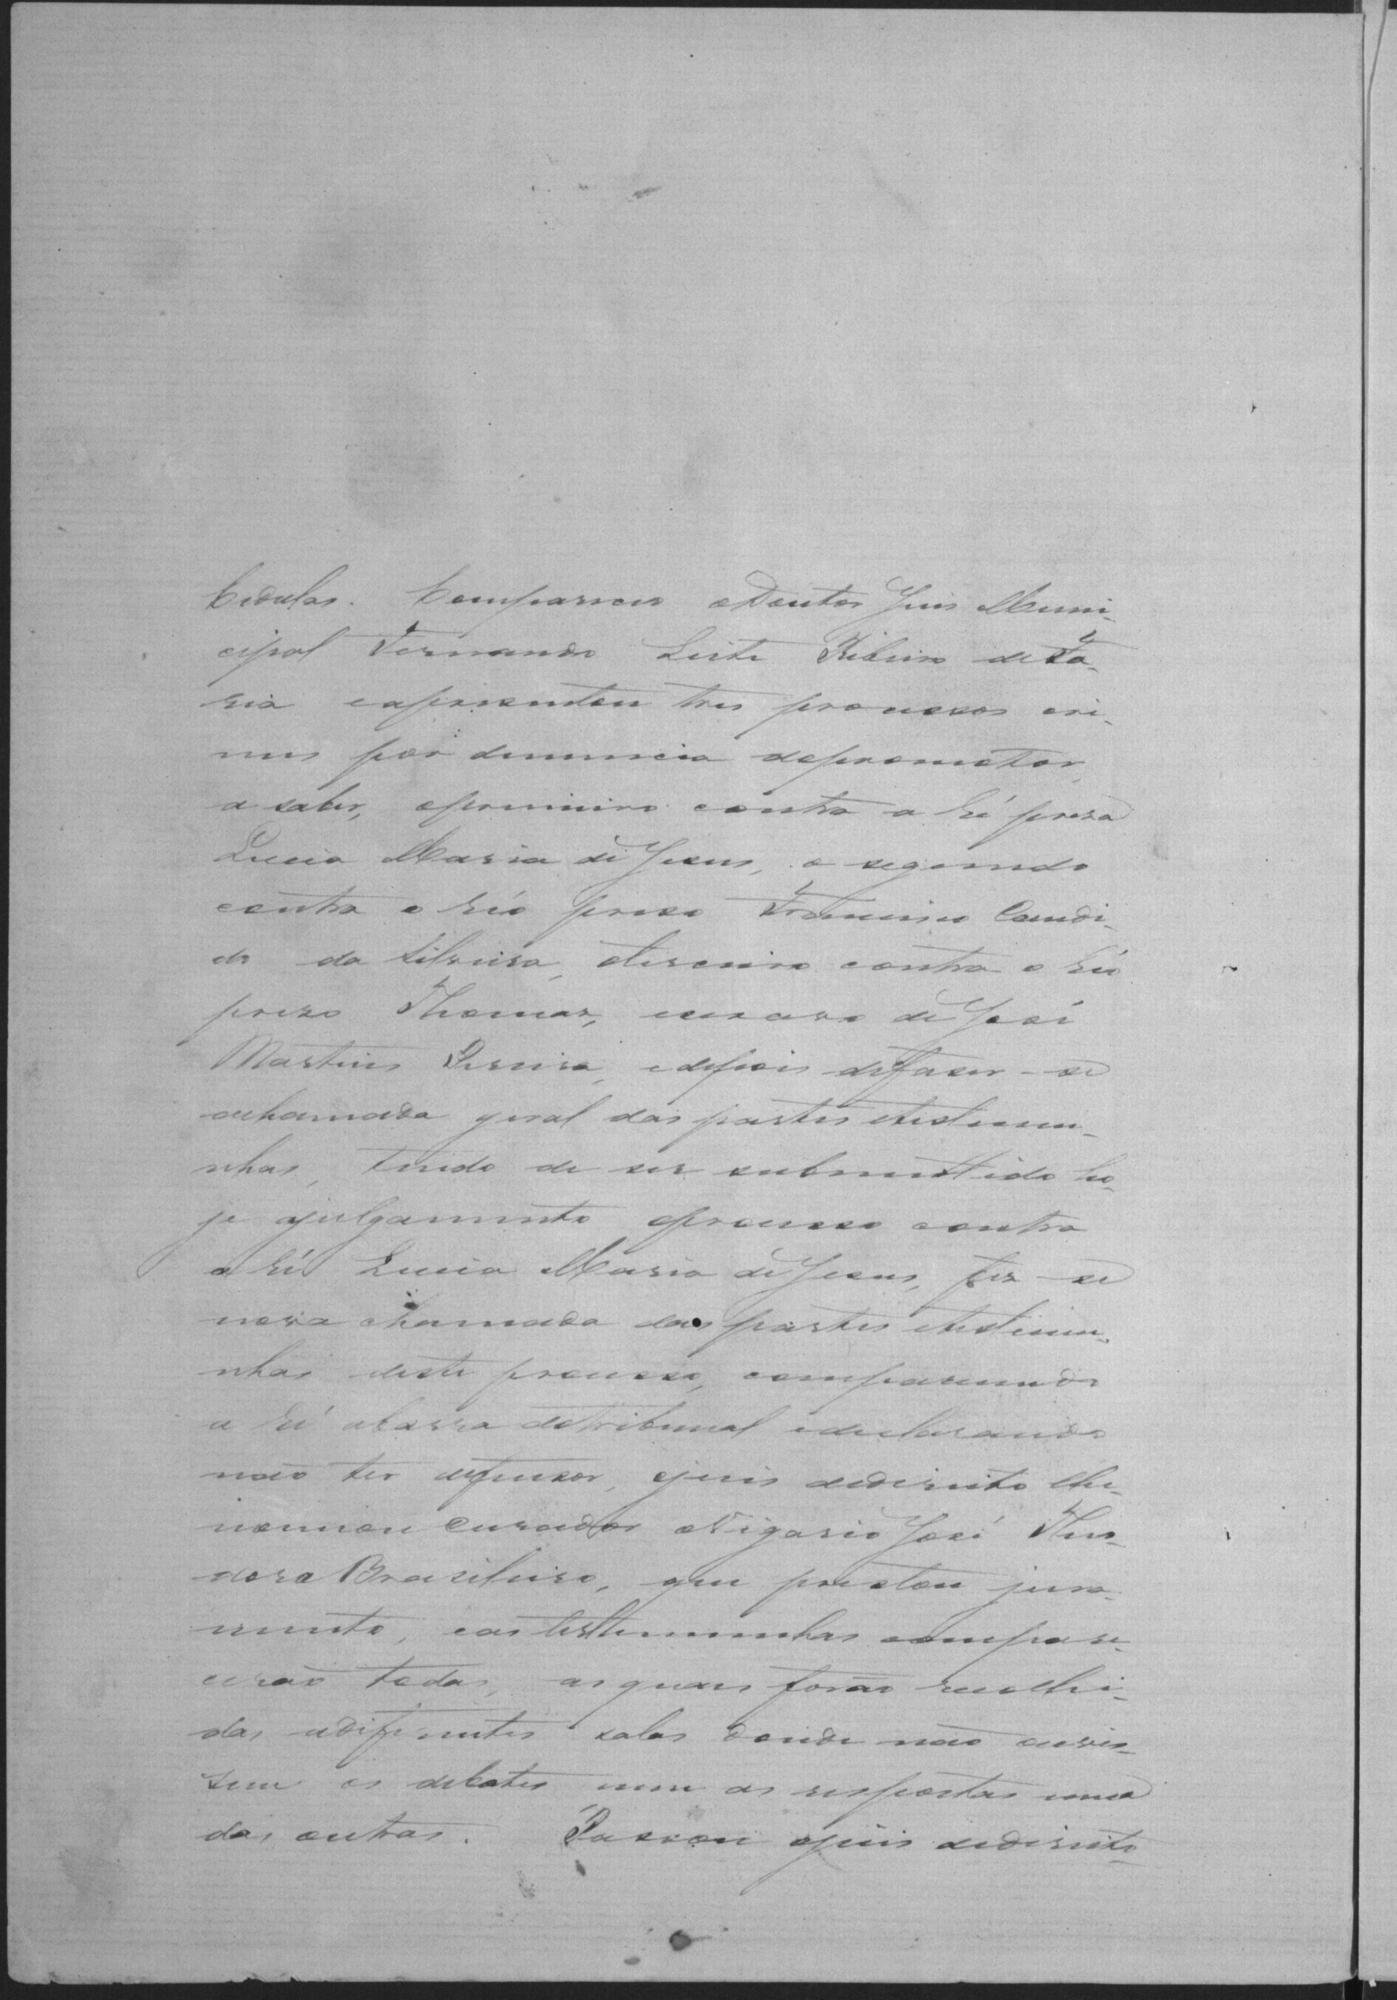 Cedulas. Compareceo o Doutor Juis Muni-
cipal Fernando Leite Ribeiro de Fa-
ria e apresentou tres processos cri-
mes por denuncia do promotor,
a saber, o primeiro contra a Ré preza
Lucia Maria de Jesus, o segundo
contra o Réo prezo Francisco Candi-
do da Silveira, o terceiro contra o Réo
prezo Thomas, escravo de José
Martins Pereira, e depois de fazer-se
a chamada geral das partes e testemu-
nhas, tendo de ser submettido ho-
je a julgamento o processo contra
a Ré Lucia Maria de Jesus, fez-se
nova chamada das partes e testemu-
nhas deste processo, comparecendo
a Ré a barra do tribunal e declarando
não ter defensor, o juis de direito lhe
nomeou Curador o Vigario José Theo-
doro Brasileiro, que prestou jura-
mento, e as testemunhas compare-
cerão todas, as quaes forão recolhi-
das a differentes salas donde não ouvis-
sem os debates nem as respostas umas
das outras. Passou o juis de direito